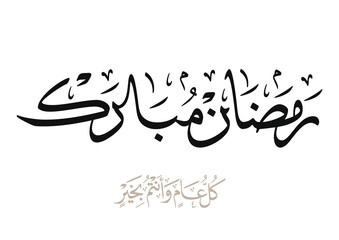 رمضان مبارك
كُلُّ عَامٍ وَأَنتُمْ بِخَيْرٍ